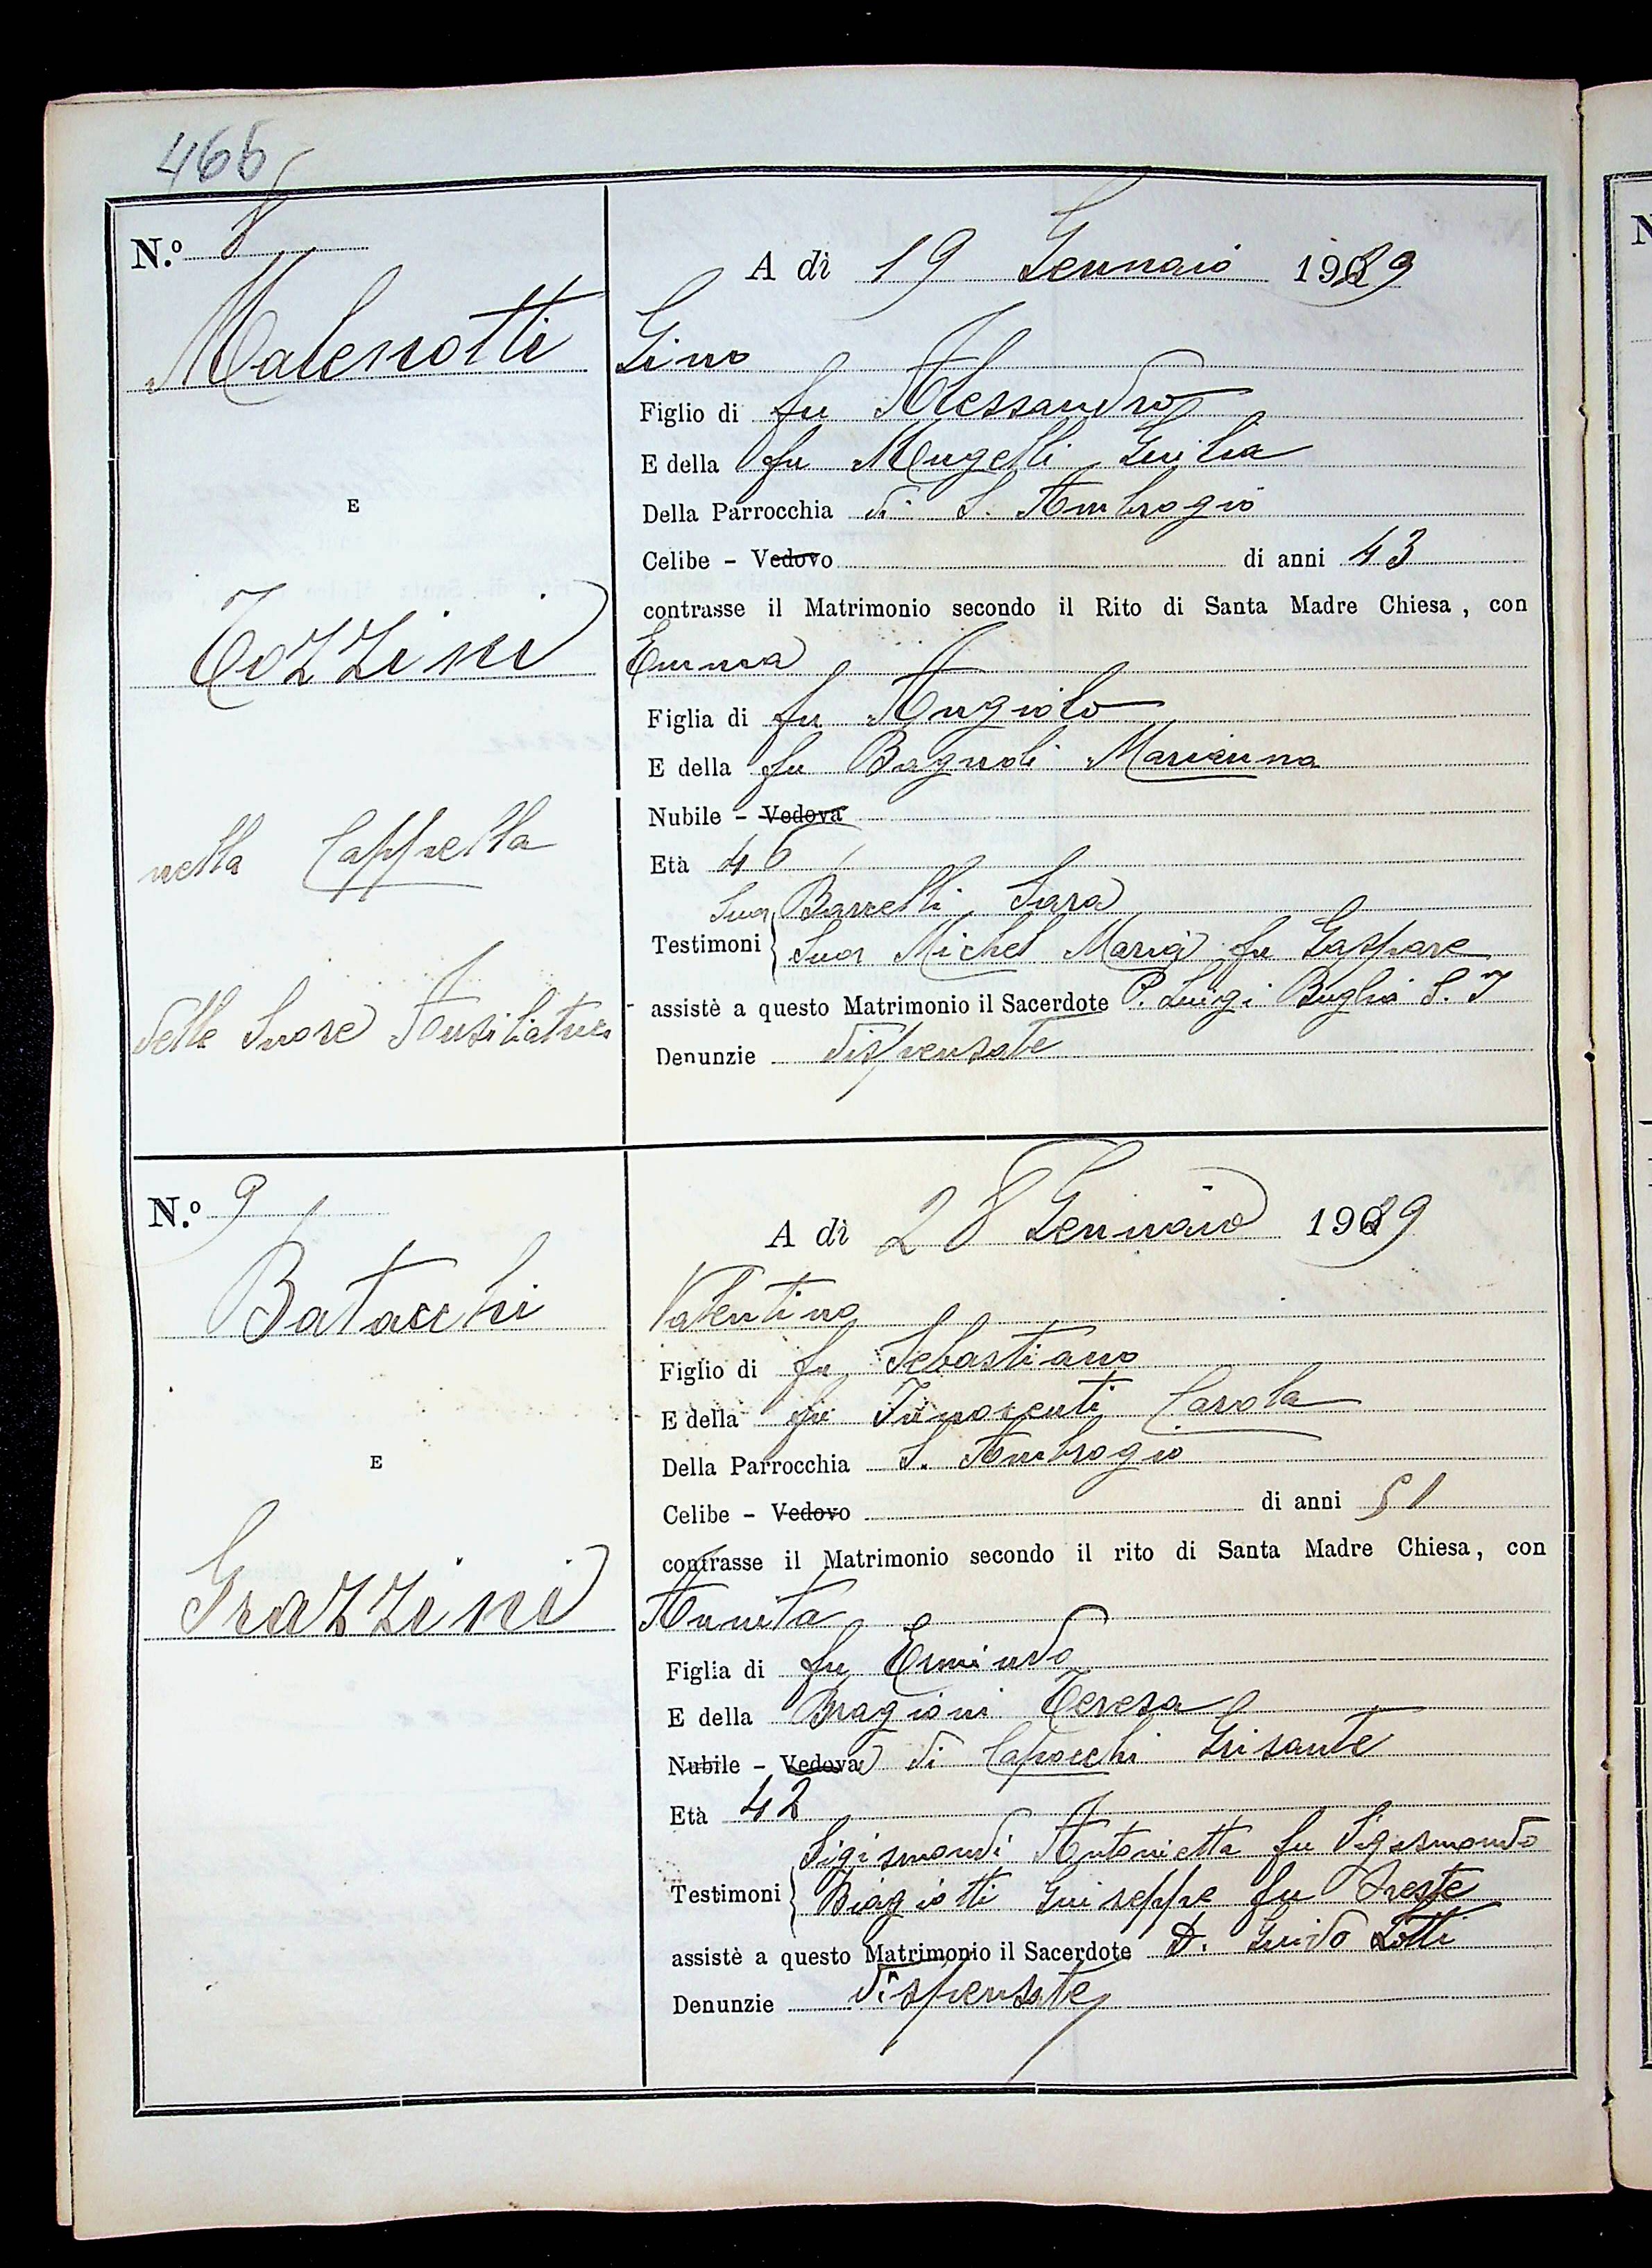 466
N.º 8
A dì 19 Gennaio 1929
Malenotti
Gino
Figlio di fu Alessandro
E della fu Mugelli Giulia
Della Parrocchia di S. Ambrogio
E
Celibe - Vedovo di anni 43
contrasse il Matrimonio secondo il Rito di Santa Madre Chiesa, con
Tozzini
Emma
Figlia di fu Angiolo
E della fu Bagnoli Marianna
Nubile - Vedova
nella Cappella
Età 46
Suor Barcelli Sara
Testimoni Suor Michel Maria fu Gaspare
delle Suore Ausiliatrici
assistè a questo Matrimonio il Sacerdote P. Luigi Buglia S. I
Denunzie dispensate
N.º 9
A dì 28 Gennaio 1929
Batacchi
Valentino
Figlio di fu Sebastiano
E della fu Innocenti Carola
Della Parrocchia S. Ambrogio
E
Celibe - Vedovo di anni 51
contrasse il Matrimonio secondo il rito di Santa Madre Chiesa, con
Grazzini
Annita
Figlia di fu Ermindo
E della Bragioni Teresa
Nubile - Vedova di Capocchi Grisante
Età 42
Sigismondi Antonietta fu Sigismondo
Testimoni Biagiotti Giuseppe fu Oreste
assistè a questo Matrimonio il Sacerdote D. Guido Lotti
Denunzie dispensate